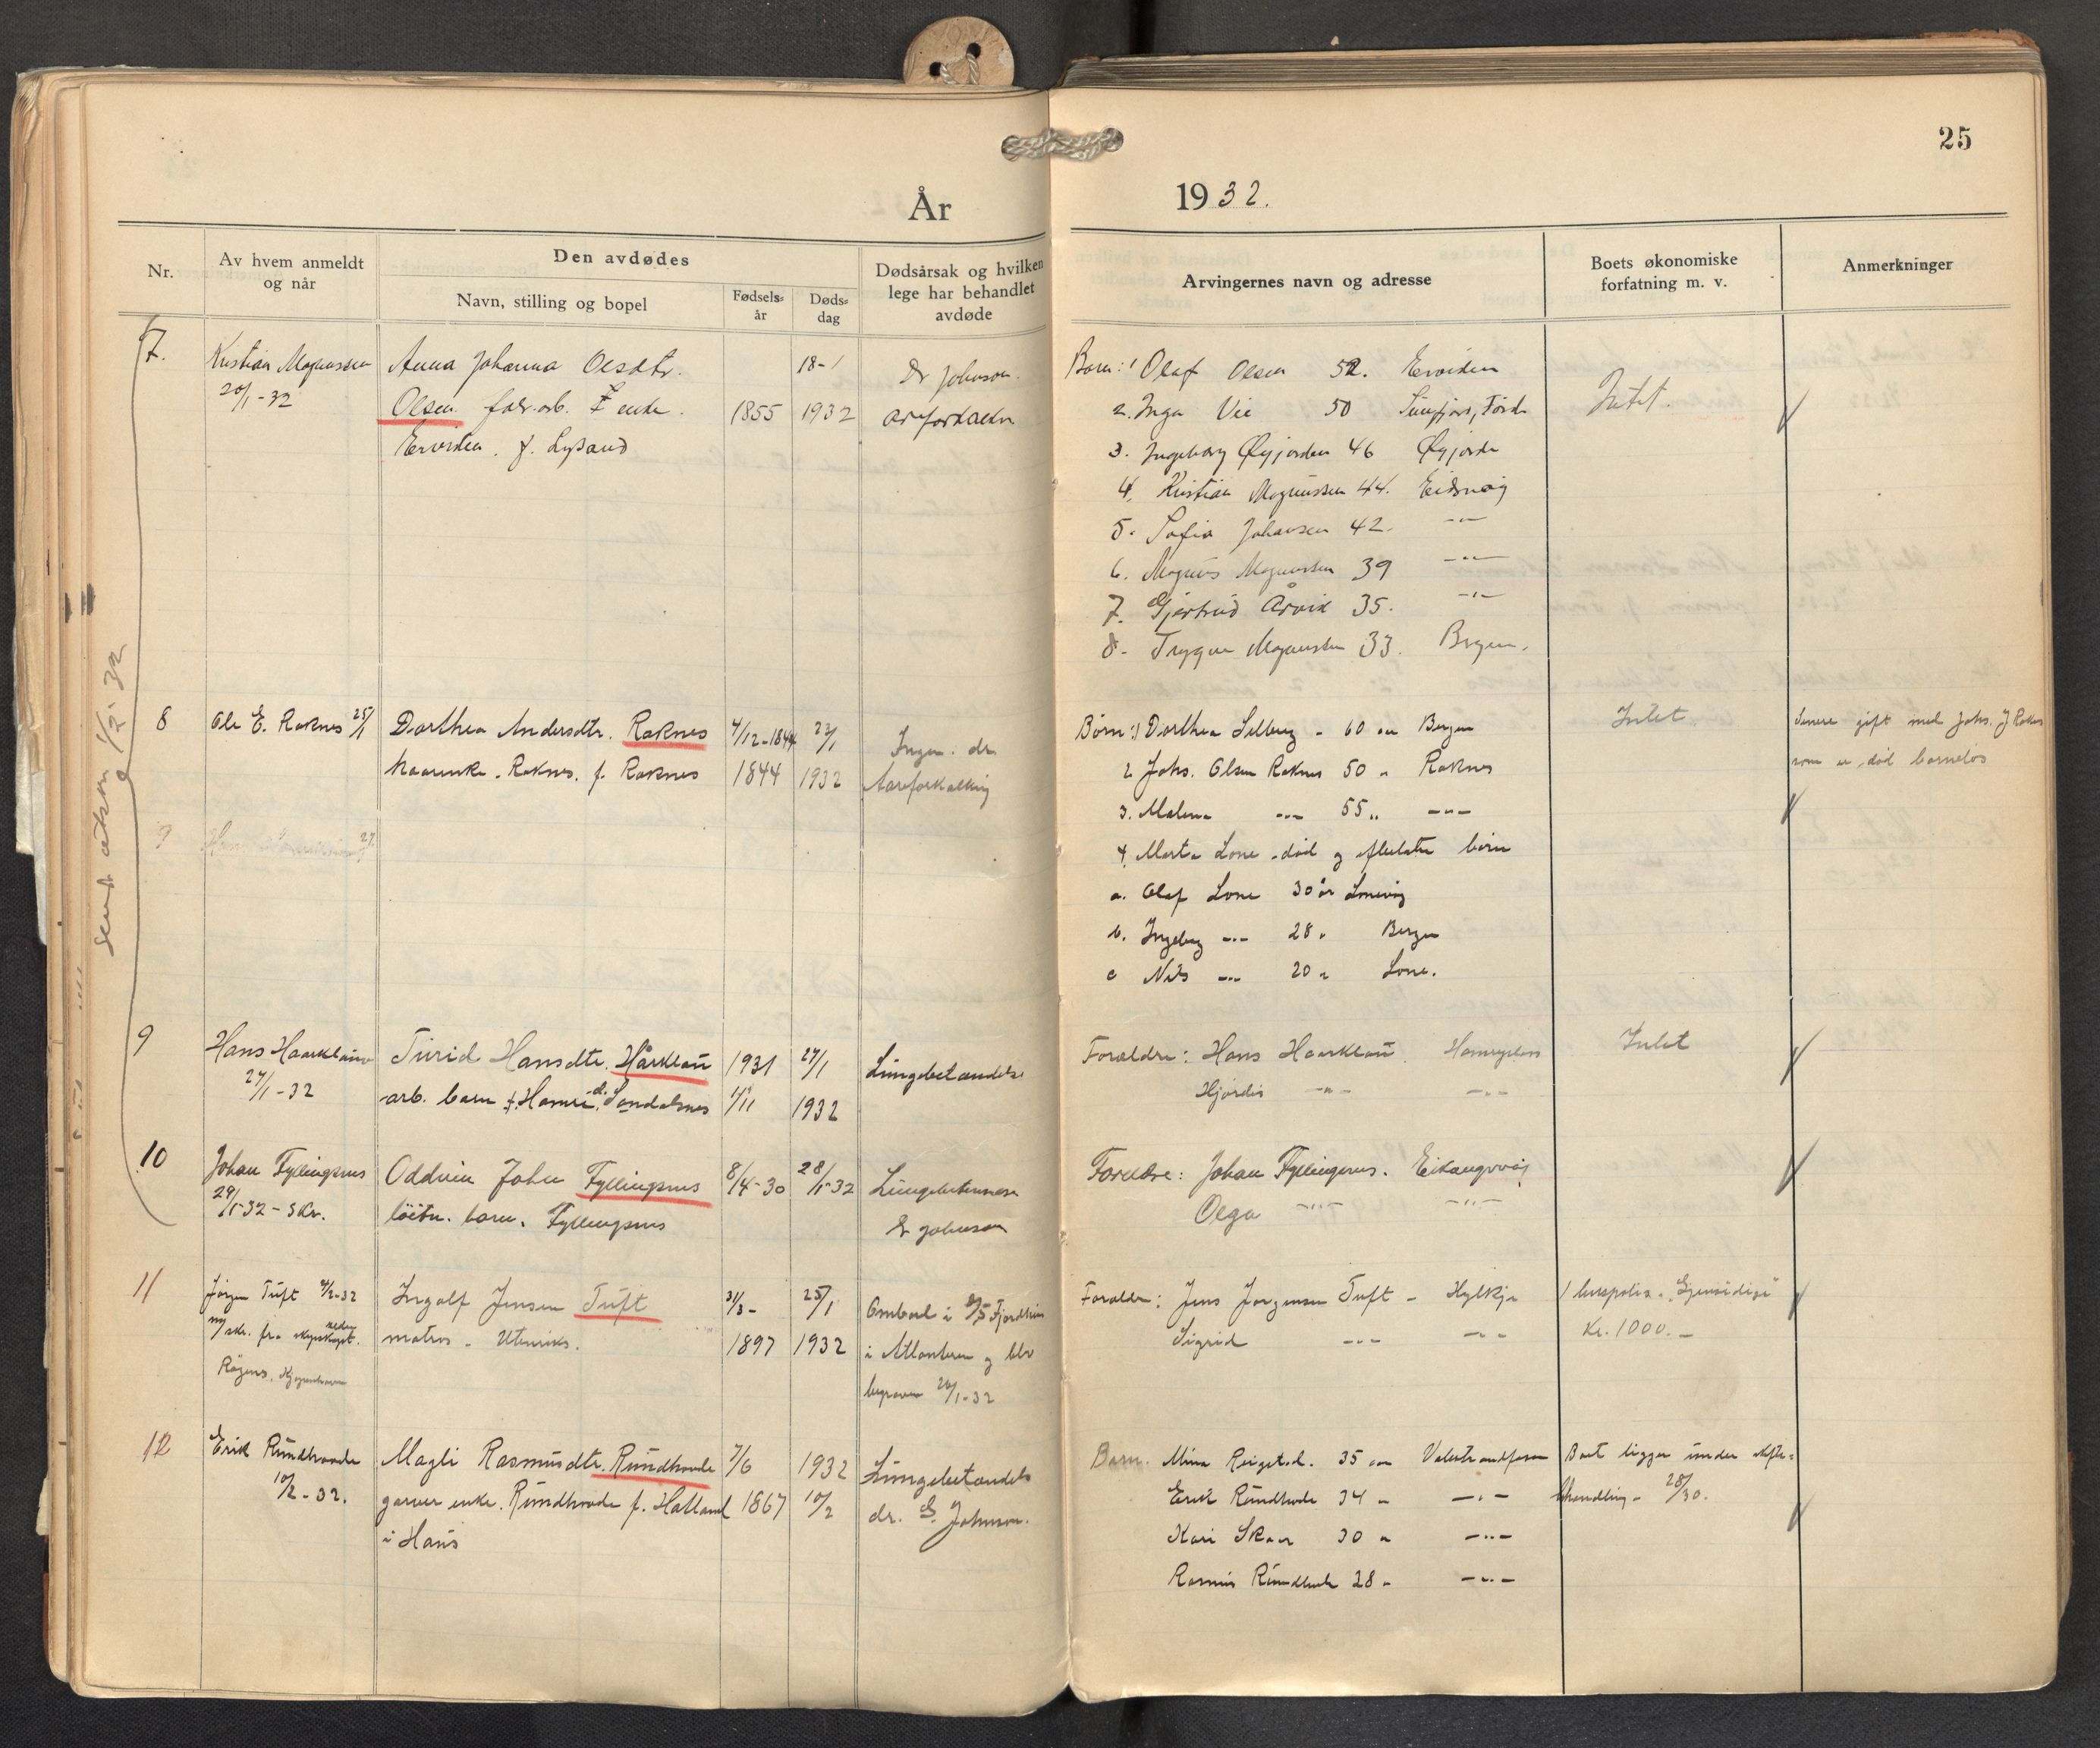 25
År 1932.
Nr.
Av hvem anmeldt
og når
Den avdødes
Navn, stilling og bopel
Fødsels-
år
Døds-
dag
Dødsårsak og hvilken
lege har behandlet
avdøde
Arvingernes navn og adresse
Boets økonomiske
forfatning m. v.
Anmerkninger
7.
Kristian Magnussen
20/1-32
Anna Johanna Olsdtr.
Olsen fabr.arb. enke.
Ervikn. f.
1855
18-1
1932
Dr Johnson.
Barn: 1 Olaf Olsen 52. Erviken
2. Inga Vie 50 Sunfjord, Førde
3. Ingeborg 46
4. Kristian Magnussen 44. Eidsvåg
5. Sofia Johansen 42. -"-
6. Magnus Magnussen 39 -"-
7. Gjertrud Årvik 35. -"-
8. Trygve Magnussen 33. Bergen.
Intet.
sendt utskr. 1/2-32
8
Ole E. Raknes 25/1
Dorthea Andersdtr. Raknes
Raknes. f. Raknes
4/12-1844
1844
23/1
1932
Ingen dr.
Aareforkalkning
Børn: 1) Dorthea Selberg - 60 aar Bergen
2 Johs. Olsen Raknes 50 " Raknes
3. Malena -"- 55 " -"-
4. Marta Lone - død og efterlater børn
a. Olaf Lone 30 år Lonevåg
b. Ingeborg -"- 28 " Bergen
c Nils -"- 20 " Lone.
Intet
Senere gift med Johs. J Raknes
som er død barnløs
9
9
Hans Haarklau
27/1-32
Turid Hansdtr. Hårklau
arb. barn
1931
1/11
27/1
1932
Lungebetændelse
Foraldre: Hans Haarklau.
Hjørdis -"- -"-
Intet
10
Johan Fyllingsnes
29/1-32 - skr.
Oddvin John Fyllingsnes
barn. Fyllingsnes
8/4-30
28/1-32
Lungebetennelse
Dr Johnson
Foreldre: Johan Fyllingsnes. Eikangervåg
Olga -"- -"-
11
Jørgen Tuft 4/2-32
skr. fra
Ingolf Jensen Tuft
matros - Utenriks.
31/3-
1897
25/1
1932
Ombord i
i Atlanteren og blev
begraven 26/1-32
Foraldre: Jens Jorgensen Tuft - Hylkje
Sigrid -"- -"-
1 livspolis. "Gjensidige"
Kr. 1000. -
12
Erik Rundhovde
10/2-32.
Magli Rasmusdtr. Rundhovde
enke. Rundhovde f. Hatland
i Haus
7/6
1867
1932
10/2
Lungebetændelse
dr. E. Johnson.
Barn. Mina 35 aar
Erik Rundhovde 34 " -"-
Kari Skaar 30 " -"-
Rasmus Rundhovde 28 " -"-
Boet ligger under skifte-
behandling - 28/30.